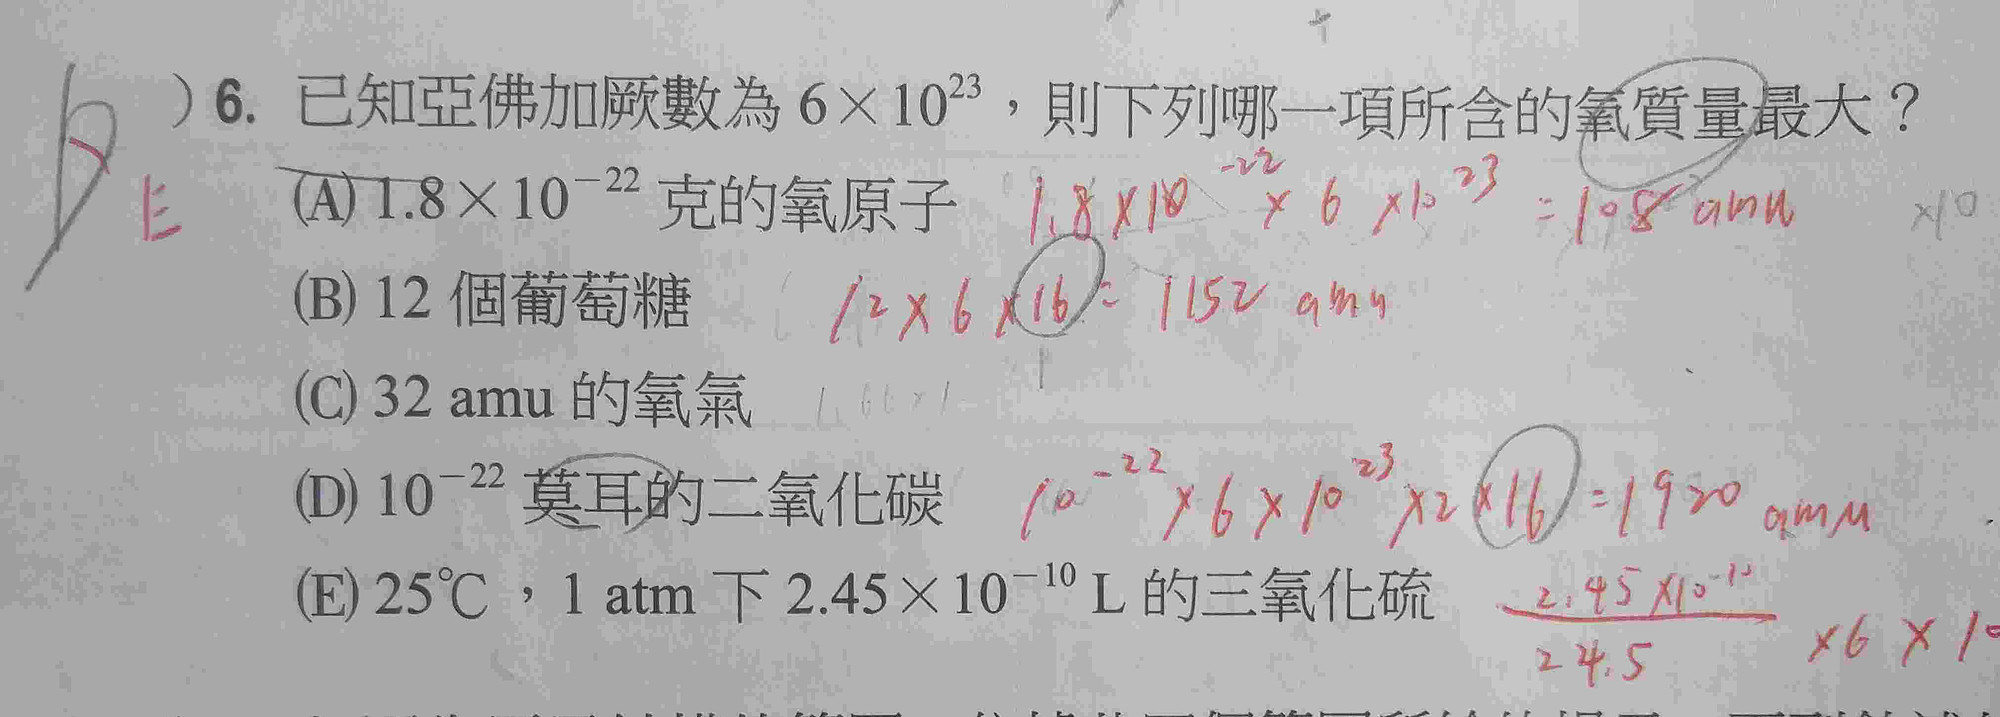 D
E
)6. 已知亞佛加厥數為 6×10²³,則下列哪一項所含的氧質量最大?
(A) 1.8×10⁻²² 克的氧原子 1.8×10⁻²² × 6 ×10²³ = 108 amu ×10
(B) 12 個葡萄糖 12 × 6 ×16 = 1152 amu
(C) 32 amu 的氧氣
(D) 10⁻²² 莫耳的二氧化碳 10⁻²² × 6 × 10²³ ×2 ×16 = 1920 amu
(E) 25℃,1 atm 下 2.45×10⁻¹⁰ L 的三氧化硫 2.45 ×10⁻¹⁰
24.5 ×6 × 10